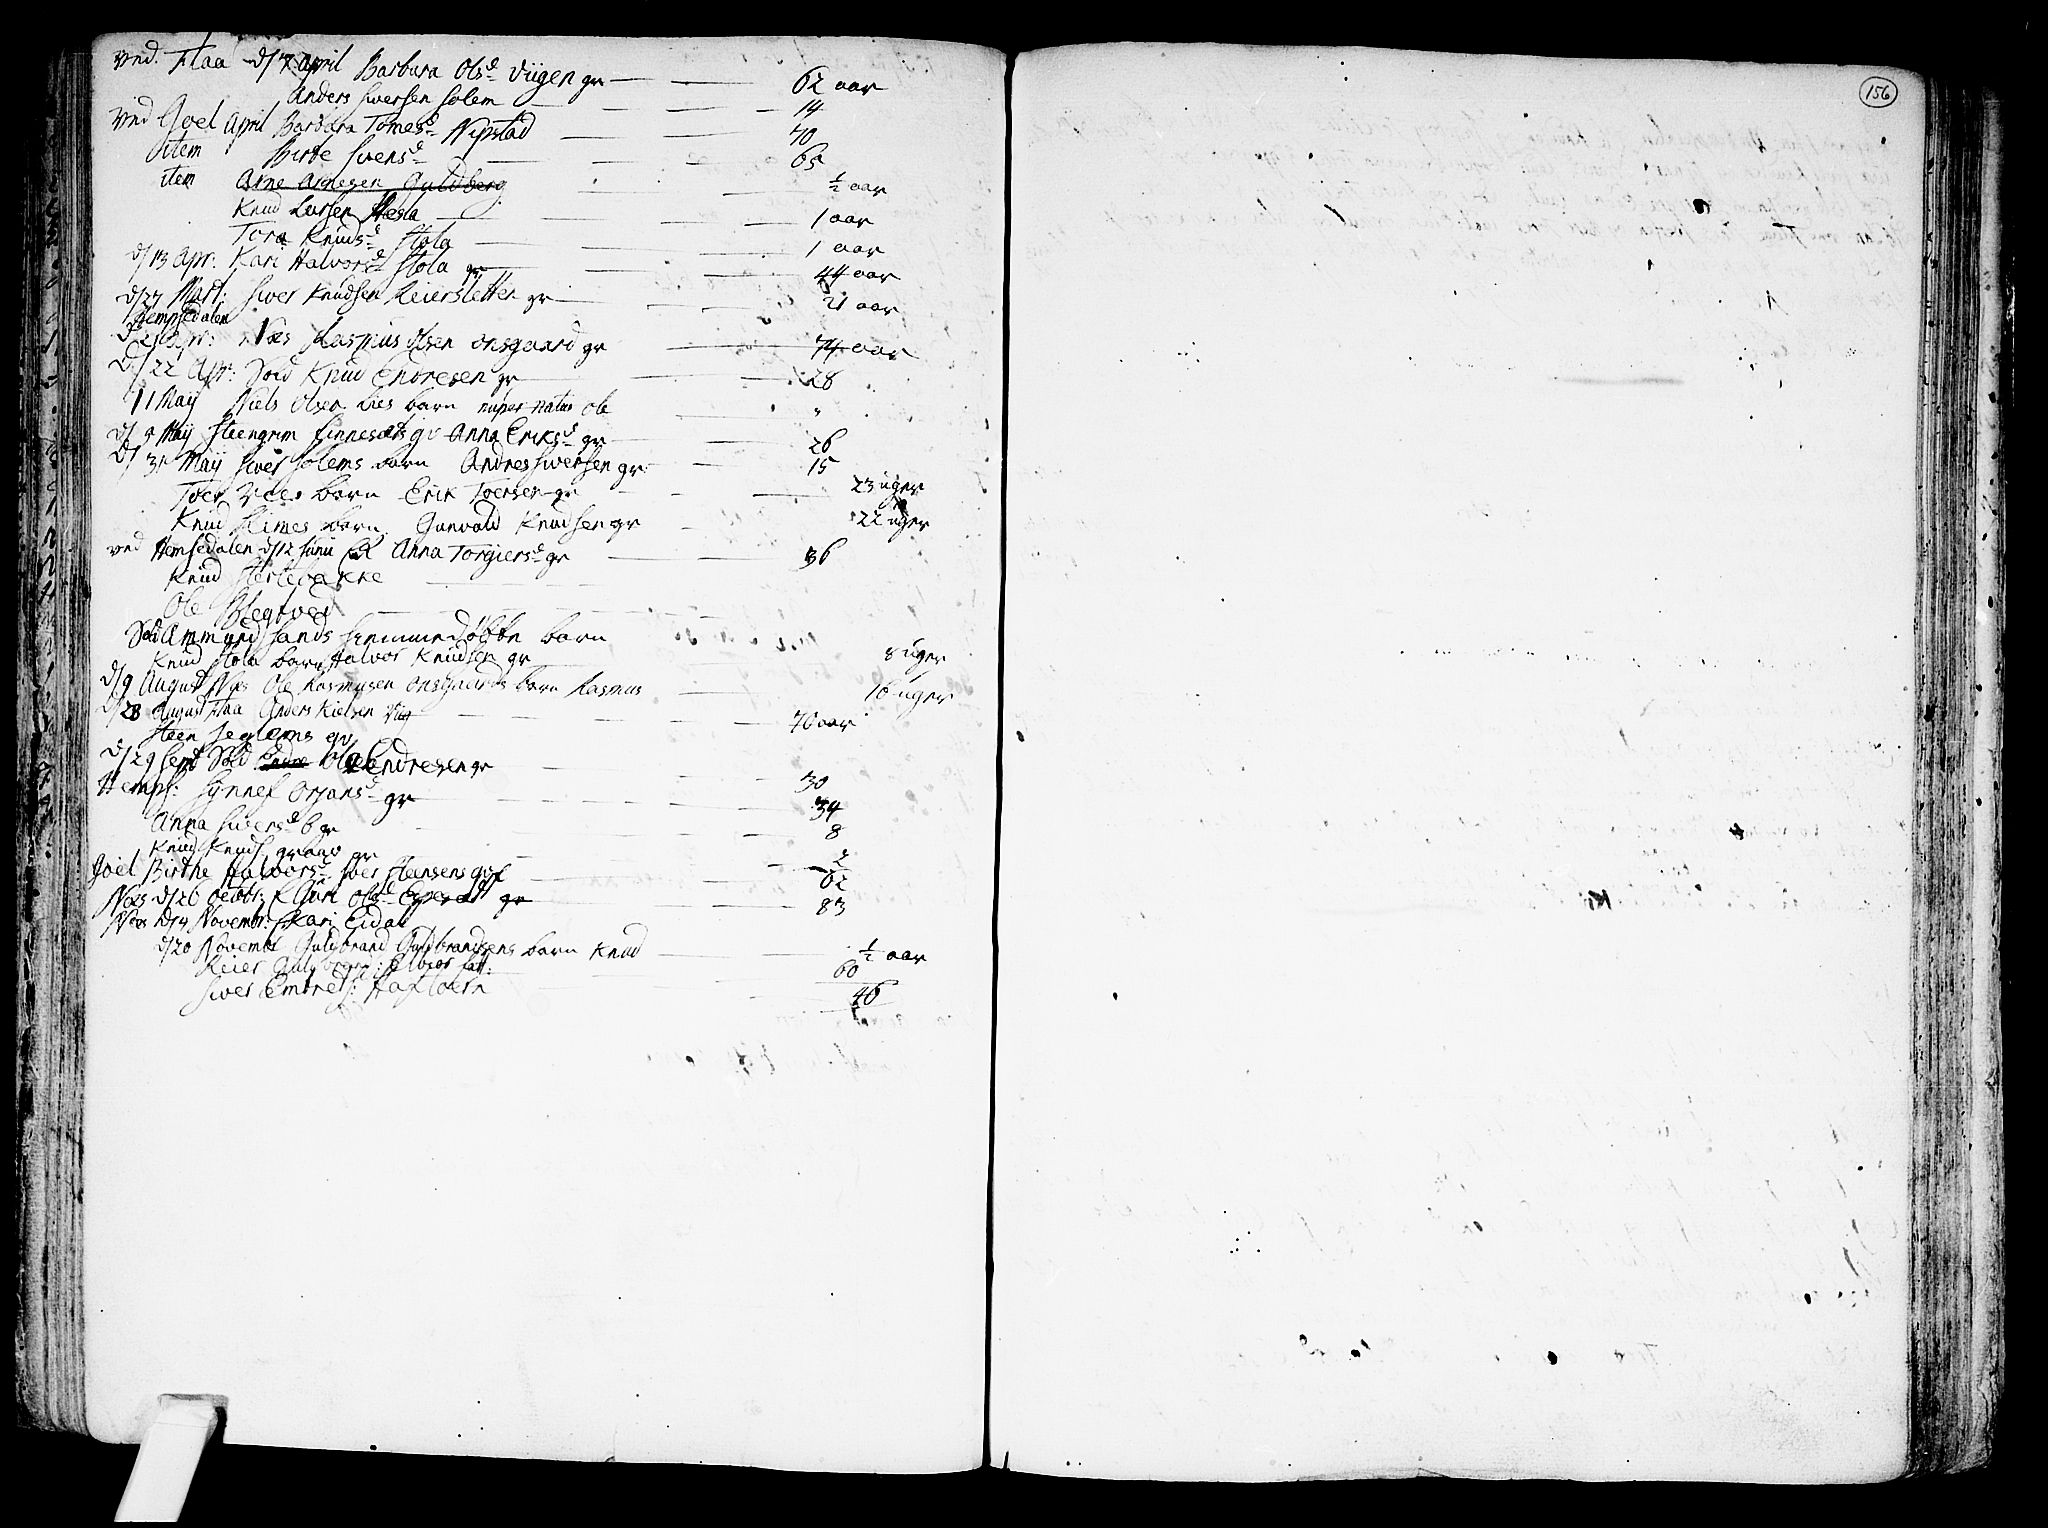 ved. Flaa d/7 April Barbara Olsd Viigen gr — 62 aar
Anders Siversen Solem — 14
ved Goel April Barbara Tomesd Nipstad — 70
item Birte Svensd — 65
item Arne Arnesen Guldberg — ½ aar
Knud Larsen — 1 aar
Tora Knudsd Stola — 1 aar
d/13 Apr: Kari Halvorsd Stola gr — 44 aar
d/27 Mart: Siver Knudsen Reiersletten gr — 21 aar
Hempsedalen
Apr: Næs Rasmus Olsen Onsgaard gr — 74 aar
D/22 Apr: Sold Knud Endresen gr — 28
11 Maij Niels Olsen Lies barn nuper natus Ole — "
d/ 9 Maij Steengrim Finnesets gv Anna Eriksd gr — 26
D/ 31 Maij Siver Solems barn Andres Siversen gr — 15
Toer barn Erik Toersen gr — 23 uger
Knud barn Gunvald Knudsen gr — 22 uger
ved Hemsedalen d/12 Junii Anna Torgiersd gr — 36
Knud Stertebakke
Ole
Sold Ammund Sands hiemmedøbte barn
Knud Stola barn Halvor Knudsen gr — 8 uger
d/9 August Næs Ole Rasmusen Onsgaards barn Rasmus — 16 uger
d/28 August Flaa Anders Kielsen Viig — 70 aar
Steen gv
d/29 Sept Sold Ola Endresen gr — 30
Hemps: Synnef Orjansd gr — 34
Anna Siversd B gr — 8
Knud Knuds graae gr — 2
Goel Birthe Halvorsd Iver Hansens gvf — 62
Næs d/26 octobr: Guri Olsd gr — 83
Næs D/4 Novembr: Kari Eidal
d/20 Novembr Guldbrand Guldbrandsens barn Knud — ½ aar
Reier — 60
Siver Embrets: Haftorn — 46
156